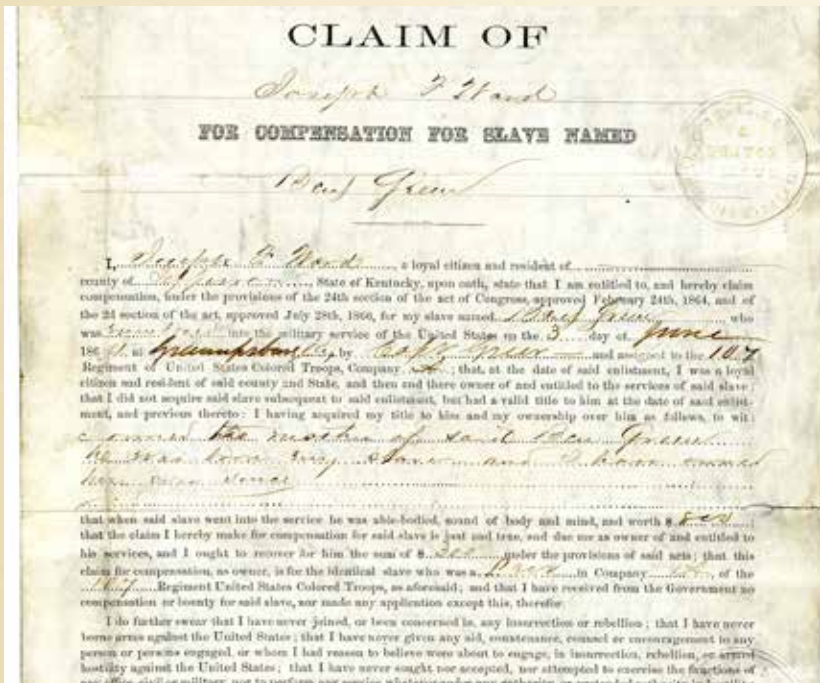 CLAIM OF
Joseph F Ward
FOR COMPENSATION FOR SLAVE NAMED
Green
I, Joseph F Ward, a loyal citizen and resident of
county of State of Kentucky, upon oath, state that I am entitled to, and hereby claim
compensation, under the provisions of the 24th section of the act of Congress, approved February 24th, 1864, and of
the 2d section of the act, approved July 28th, 1866, for my slave named Green who
was into the military service of the United States on the 3 day of June
186 at by and assigned to the 107
Regiment of United States Colored Troops, Company ; that, at the date of said enlistment, I was a loyal
citizen and resident of said county and State, and then and there owner of and entitled to the services of said slave;
that I did not acquire said slave subsequent to said enlistment, but had a valid title to him at the date of said enlist-
ment, and previous thereto: I having acquired my title to him and my ownership over him as follows, to wit:
owned the mother of said Green
he was born my slave and I have owned
him ever since
that when said slave went into the service he was able-bodied, sound of body and mind, and worth $ ;
that the claim I hereby make for compensation for said slave is just and true, and due me as owner of and entitled to
his services, and I ought to recover for him the sum of $ 300 under the provisions of said acts; that this
claim for compensation, as owner, is for the identical slave who was a in Company of the
107 Regiment United States Colored Troops, as aforesaid; and that I have received from the Government no
compensation or bounty for said slave, nor made any application except this, therefor
I do further swear that I have never joined, or been concerned in, any insurrection or rebellion; that I have never
borne arms against the United States; that I have never given any aid, countenance, counsel or encouragement to any
person or persons engaged, or whom I had reason to believe were about to engage, in insurrection, rebellion, or armed
hostility against the United States; that I have never sought nor accepted, nor attempted to exercise the functions of